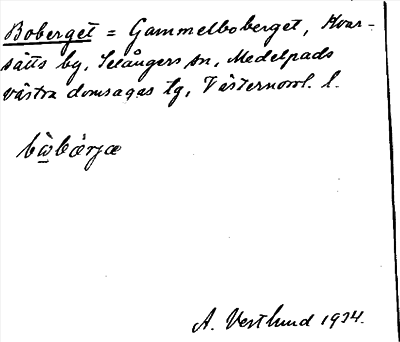 Boberget = Gammelboberget, Kvar-
sätts by, Selångers sn, Medelpads
västra domsagas tg, Västernorrl. l.
bὼbærjæ
A. Vestlund 1934.